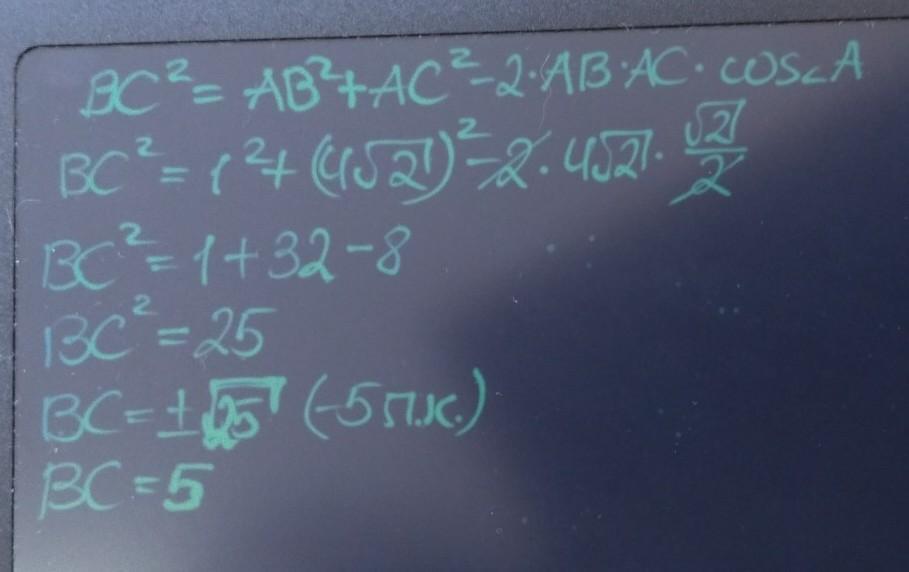 BC² = AB² + AC² - 2 · AB · AC · cos∠A
BC² = 1² + (4√2)² - 2 · 4√2 · √2/2
BC² = 1 + 32 - 8
BC² = 25
BC = ±√25 (-5 п.к.)
BC = 5